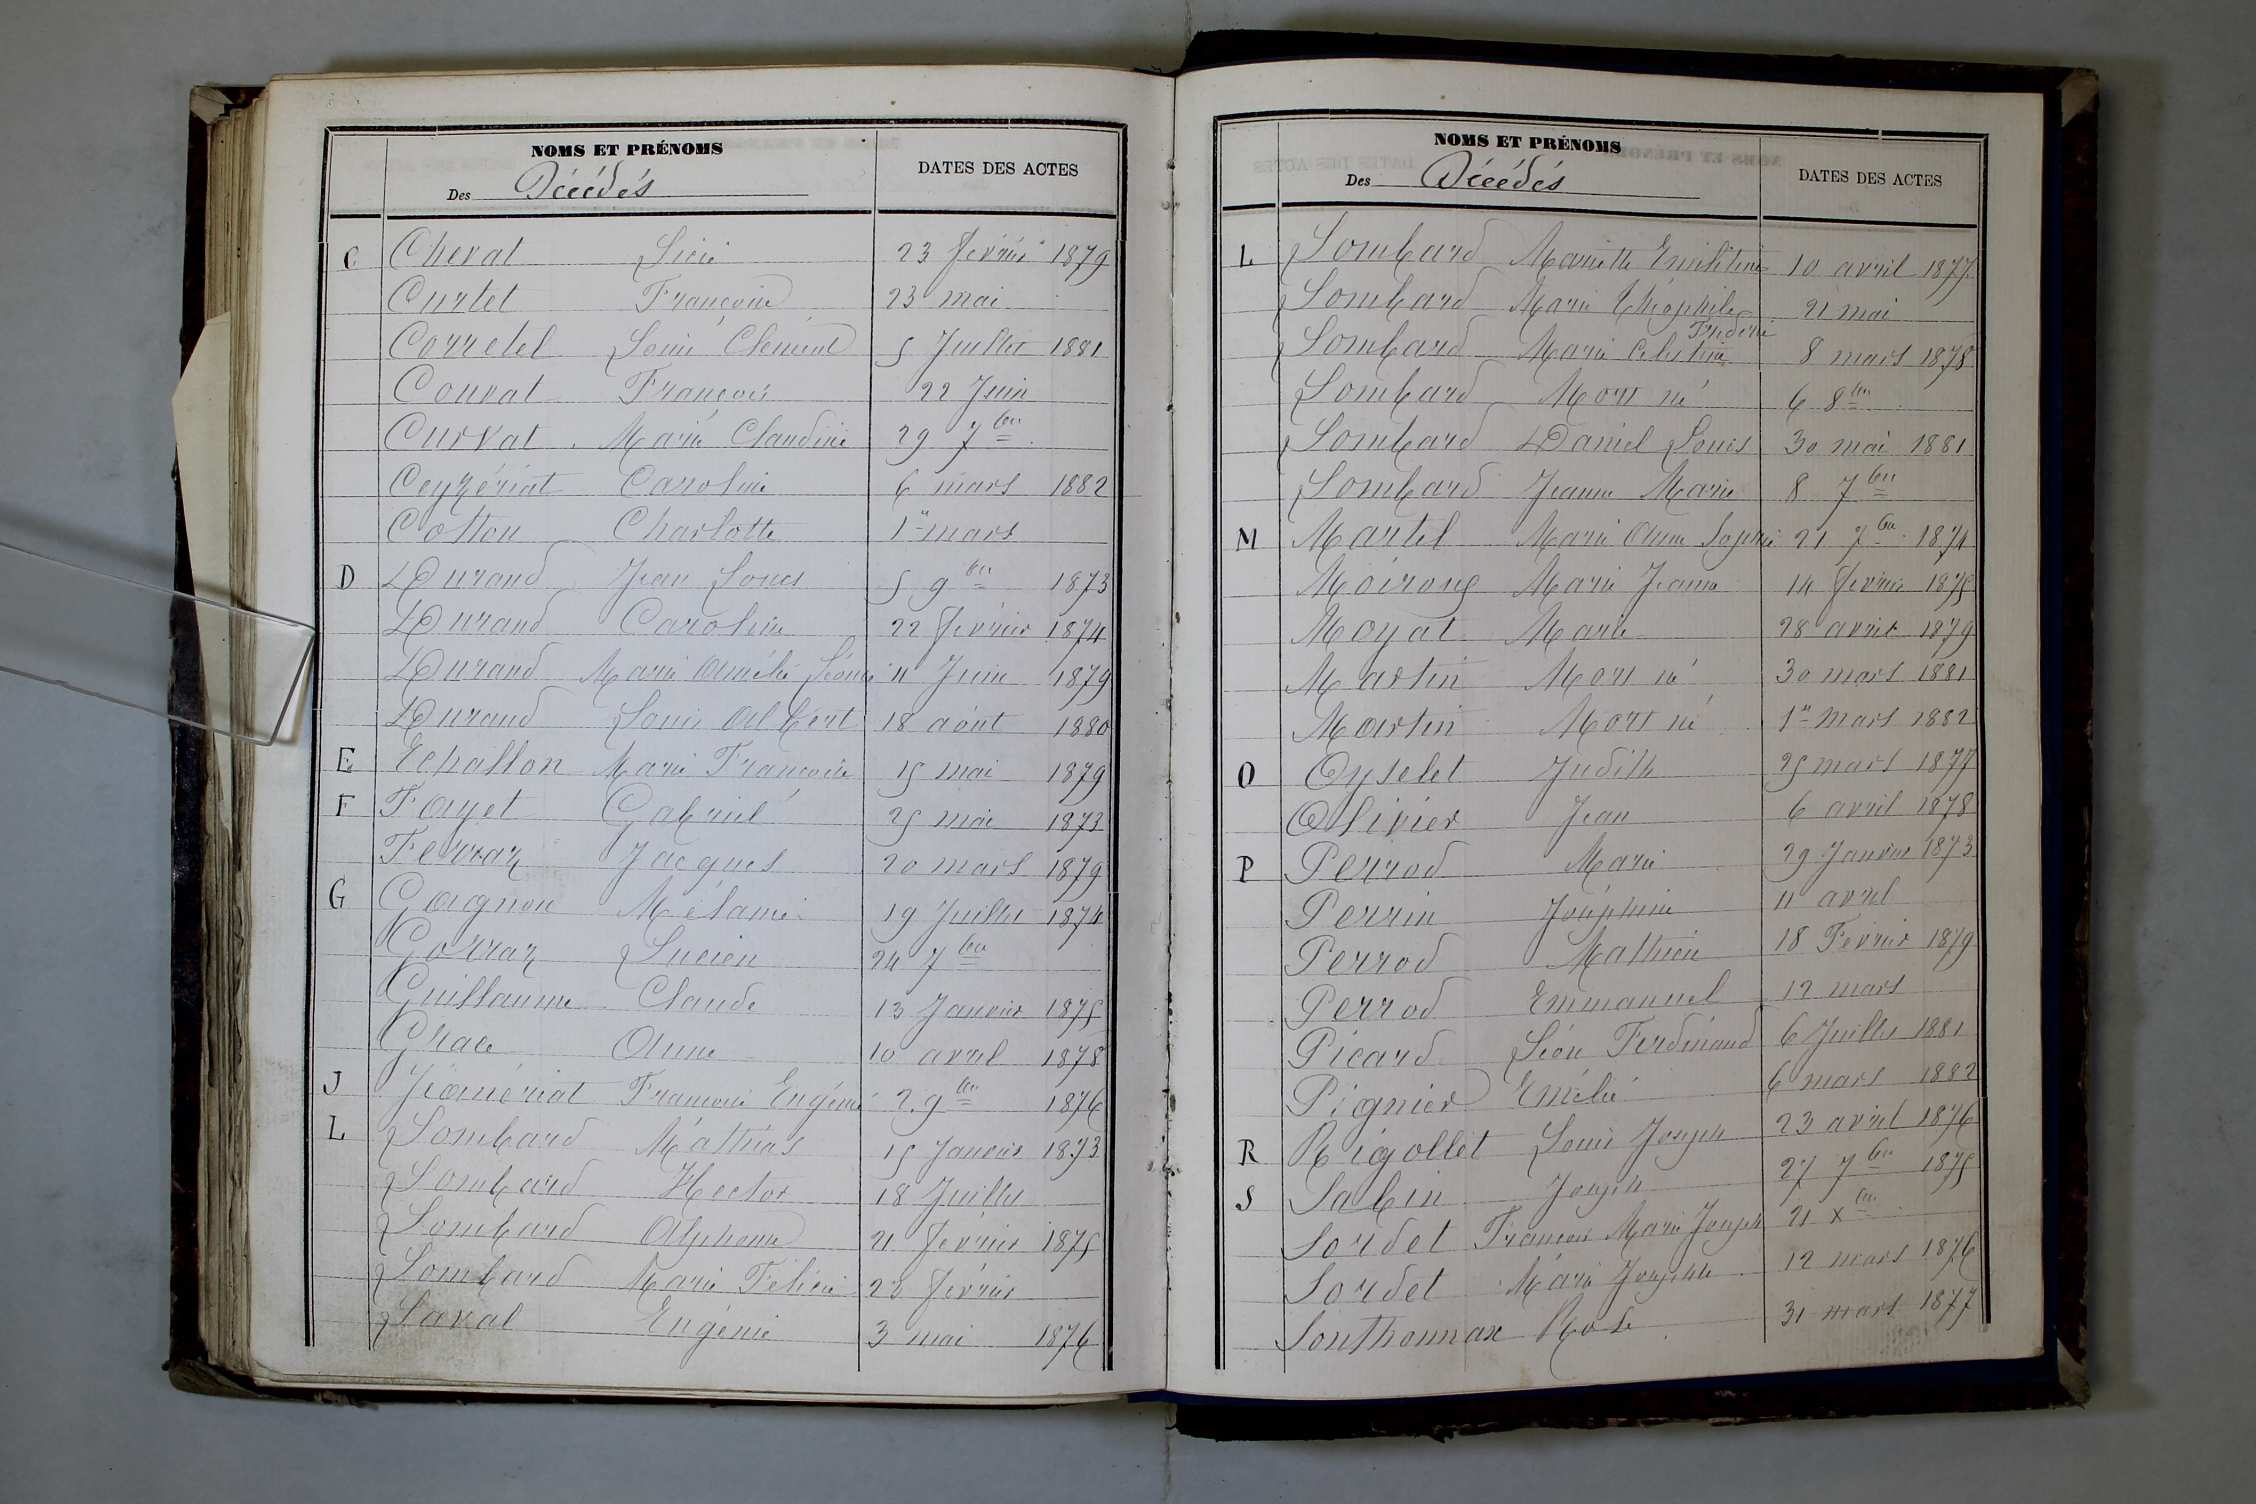 NOMS ET PRÉNOMS
Des Décédés
DATES DES ACTES
C Cherat 23 février 1879
Curtet Françoise 23 mai
Corretel Louis Clément 5 Juillet 1881
Courat François 22 Juin
Curvat Marie Claudine 29 7bre
Ceyzériat Caroline 6 mars 1882
Cotton Charlotte 1er mars
D Durand Jean Louis 5 9bre 1873
Durand Caroline 22 février 1874
Durand Marie Amélie Léonie 11 Juin 1879
Durand Louis Albert 18 août 1880
E Echallon Marie Françoise 15 mai 1879
F Fayet Gabriel 25 mai 1873
Ferraz Jacques 20 mars 1879
G Gagnon Mélanie 19 Juillet 1874
Gorraz Lucien 24 7bre
Guillaume Claude 13 Janvier 1875
Grace Anne 10 avril 1878
J Françoise Eugénie 2 9bre 1876
L Lombard Mathias 15 Janvier 1873
Lombard Hector 18 Juillet
Lombard Alphonse 21 février 1875
Lombard Marie Félicie 23 février
Laval Eugénie 3 mai 1876
NOMS ET PRÉNOMS
Des Décédés
DATES DES ACTES
L Lombard Mariette 10 avril 1877
Lombard Marie Théophile 21 mai
Frédéric
Lombard Marie Célestin 8 mars 1878
Lombard Mort né 6 8bre
Lombard Daniel Louis 30 mai 1881
Lombard Jeanne Marie 8 7bre
M Martel Marie Anne Sophie 21 7bre 1874
Moiroux Marie Jeanne 14 février 1875
Moyat Marie 28 avril 1879
Martin Mort né 30 mars 1881
Martin Mort né 1er mars 1882
O Oyselet Judith 25 mars 1877
Olivier Jean 6 avril 1878
P Perrod Marie 29 Janvier 1873
Perrin Joséphine 11 avril
Perrod Mathieu 18 Février 1879
Perrod Emmanuel 12 mars
Picard Léon Ferdinand 6 Juillet 1881
Pignier Emélie 6 mars 1882
R Rigollet Louis Joseph 23 avril 1876
S Sabin Joseph 27 7bre 1875
Sordet François Marie Joseph 21 xbre
Sordet Marie Josephte 12 mars 1876
Sonthonnax Rose 31 mars 1877